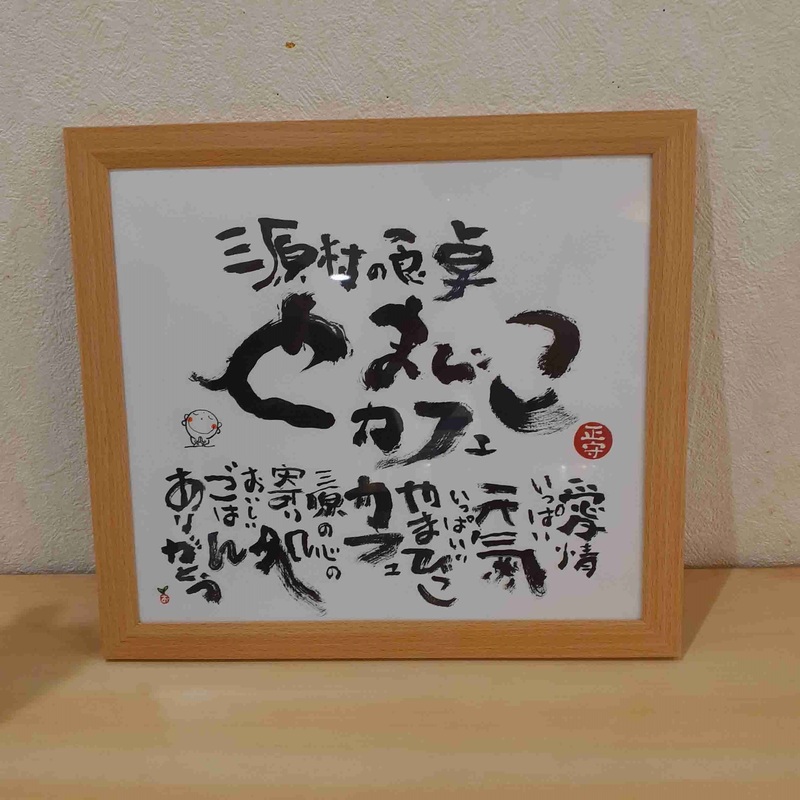 三原村の食卓
やまびこ
カフェ
正守
愛情
いっぱい
元気
いっぱい
やまびこ
カフェ
三原の心の
寄り処
おいしい
ごはん
ありがとう